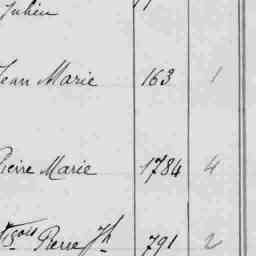 Julien
Jean Marie 163 1
Pierre Marie 1784 4
fçois Pierre Jh 791 2